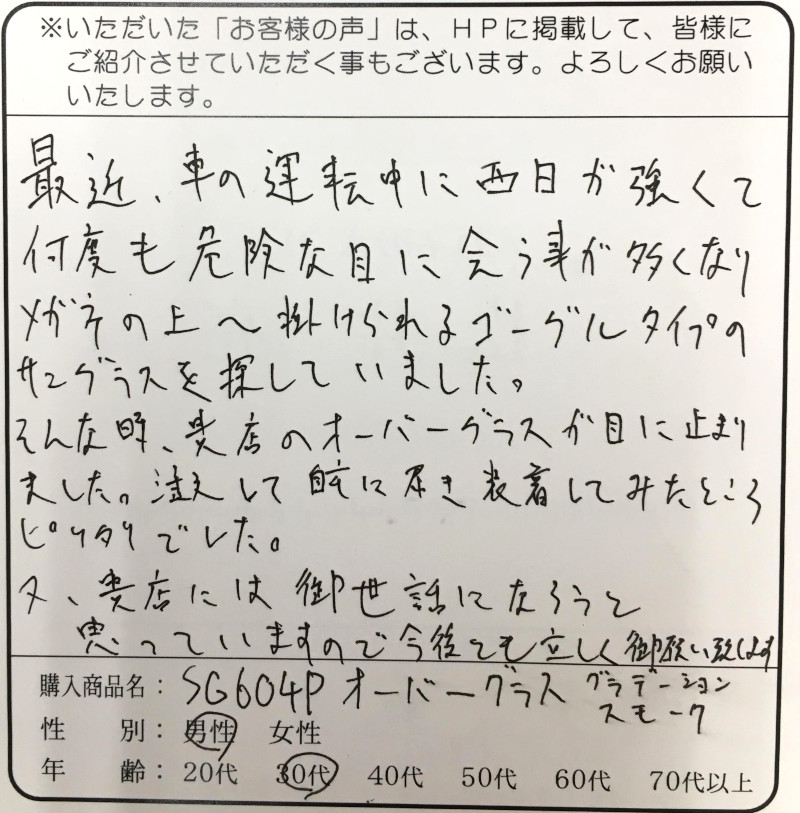 ※いただいた「お客様の声」は、HPに掲載して、皆様に
ご紹介させていただく事もございます。よろしくお願い
いたします。
最近、車の運転中に西日が強くて
何度も危険な目に会う事が多くなり
メガネの上へ掛けられるゴーグルタイプの
サングラスを探していました。
そんな時、貴店のオーバーグラスが目に止まり
ました。注文して自宅に届き装着してみたところ
ピッタリでした。
又、貴店には御世話になろうと
思っていますので今後とも宜しく御願い致します
購入商品名：SG604P オーバーグラス グラデーション
スモーク
性　　別：男性　女性
年　　齢：20代　30代　40代　50代　60代　70代以上